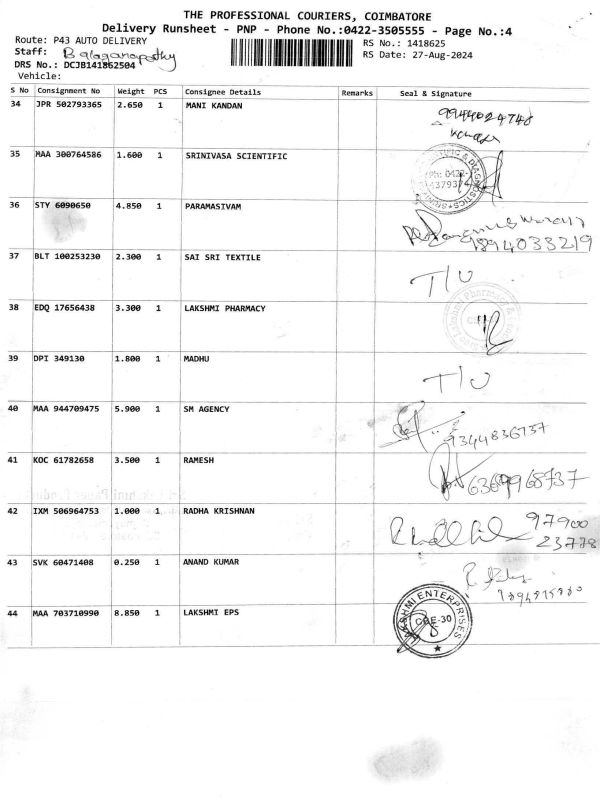 THE PROFESSIONAL COURIERS, COIMBATORE
Delivery Runsheet - PNP - Phone No.:0422-3505555 - Page No.:4
Route: P43 AUTO DELIVERY
RS No.: 1418625
Staff: Balaganapathy
RS Date: 27-Aug-2024
DRS No.: DCJB141862504
Vehicle:
S No Consignment No Weight PCS Consignee Details Remarks Seal & Signature
34 JPR 502793365 2.650 1 MANI KANDAN
9944024748
35 MAA 300764586 1.600 1 SRINIVASA SCIENTIFIC
36 STY 6090650 4.850 1 PARAMASIVAM
9894033219
37 BLT 100253230 2.300 1 SAI SRI TEXTILE
T/U
38 EDQ 17656438 3.300 1 LAKSHMI PHARMACY
39 DPI 349130 1.800 1 MADHU
T/U
40 MAA 944709475 5.900 1 SM AGENCY
9344836737
41 KOC 61782658 3.500 1 RAMESH
6369968737
42 IXM 506964753 1.000 1 RADHA KRISHNAN
97900
23778
43 SVK 60471408 0.250 1 ANAND KUMAR
44 MAA 703710990 8.850 1 LAKSHMI EPS
LAKSHMI ENTERPRISES
CBE-30